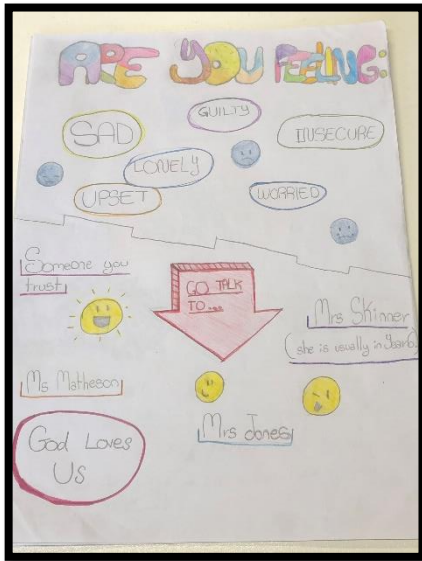 ARE YOU FEELING:
GUILTY
SAD
INSECURE
LONELY
UPSET
WORRIED
Someone you
trust
GO TALK
TO...
Mrs Skinner
(she is usually in Year 6)
Ms Matheson
Mrs Jones
God Loves
Us